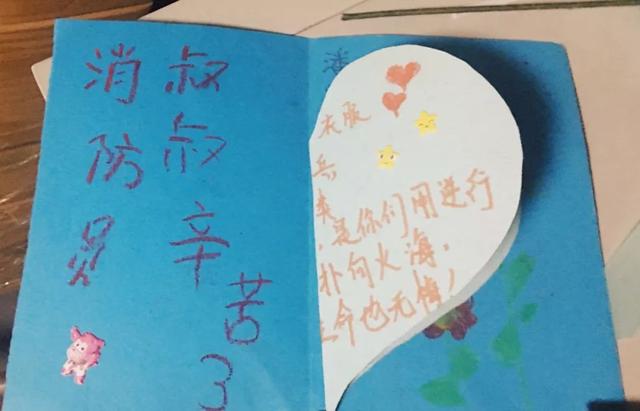 消防员
叔叔辛苦了
衣服
兵
是你们用逆行
扑向火海,
命也无悔!